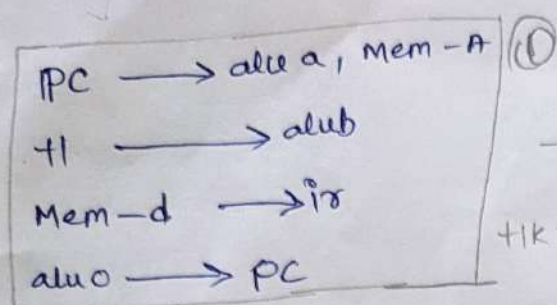 PC → alu a, Mem-A ①
+1 → alub
Mem-d → ir
+1k
aluo → PC